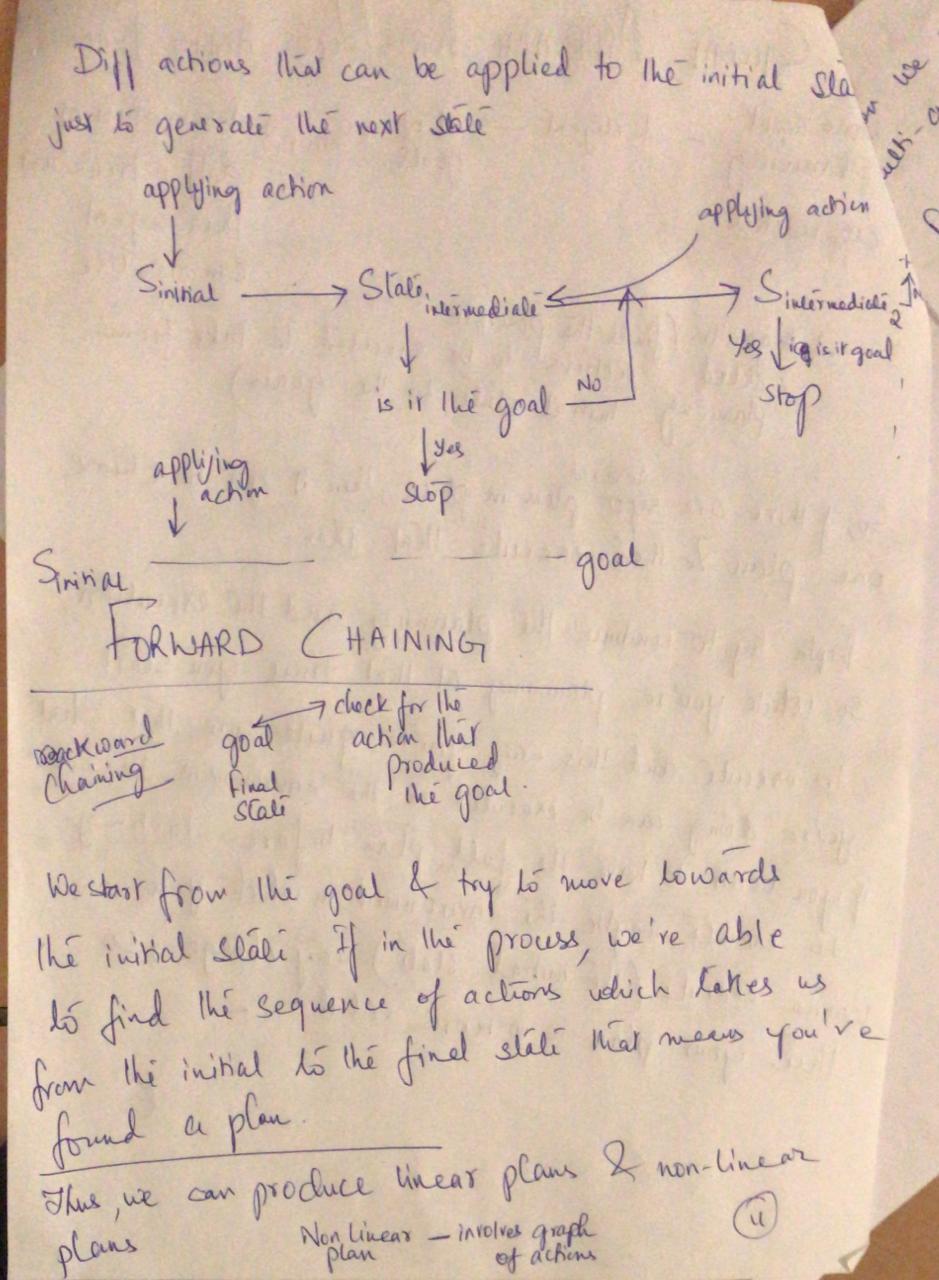 Diff actions that can be applied to the initial sta
just to generate the next state
applying action
applying action
Sinitial
State intermediate
Sintermediate 2
Yes is it goal
stop
is it the goal No
Yes
stop
applying
action
Sinitial
goal
FORWARD CHAINING
Backward
Chaining
goal
final
state
check for the
action that
produced
the goal.
We start from the goal & try to move towards
the initial state. If in the process, we're able
to find the sequence of actions which takes us
from the initial to the final state that means you've
found a plan.
Thus, we can produce linear plans & non-linear
plans
Non linear — involves graph
plan of actions
11
we